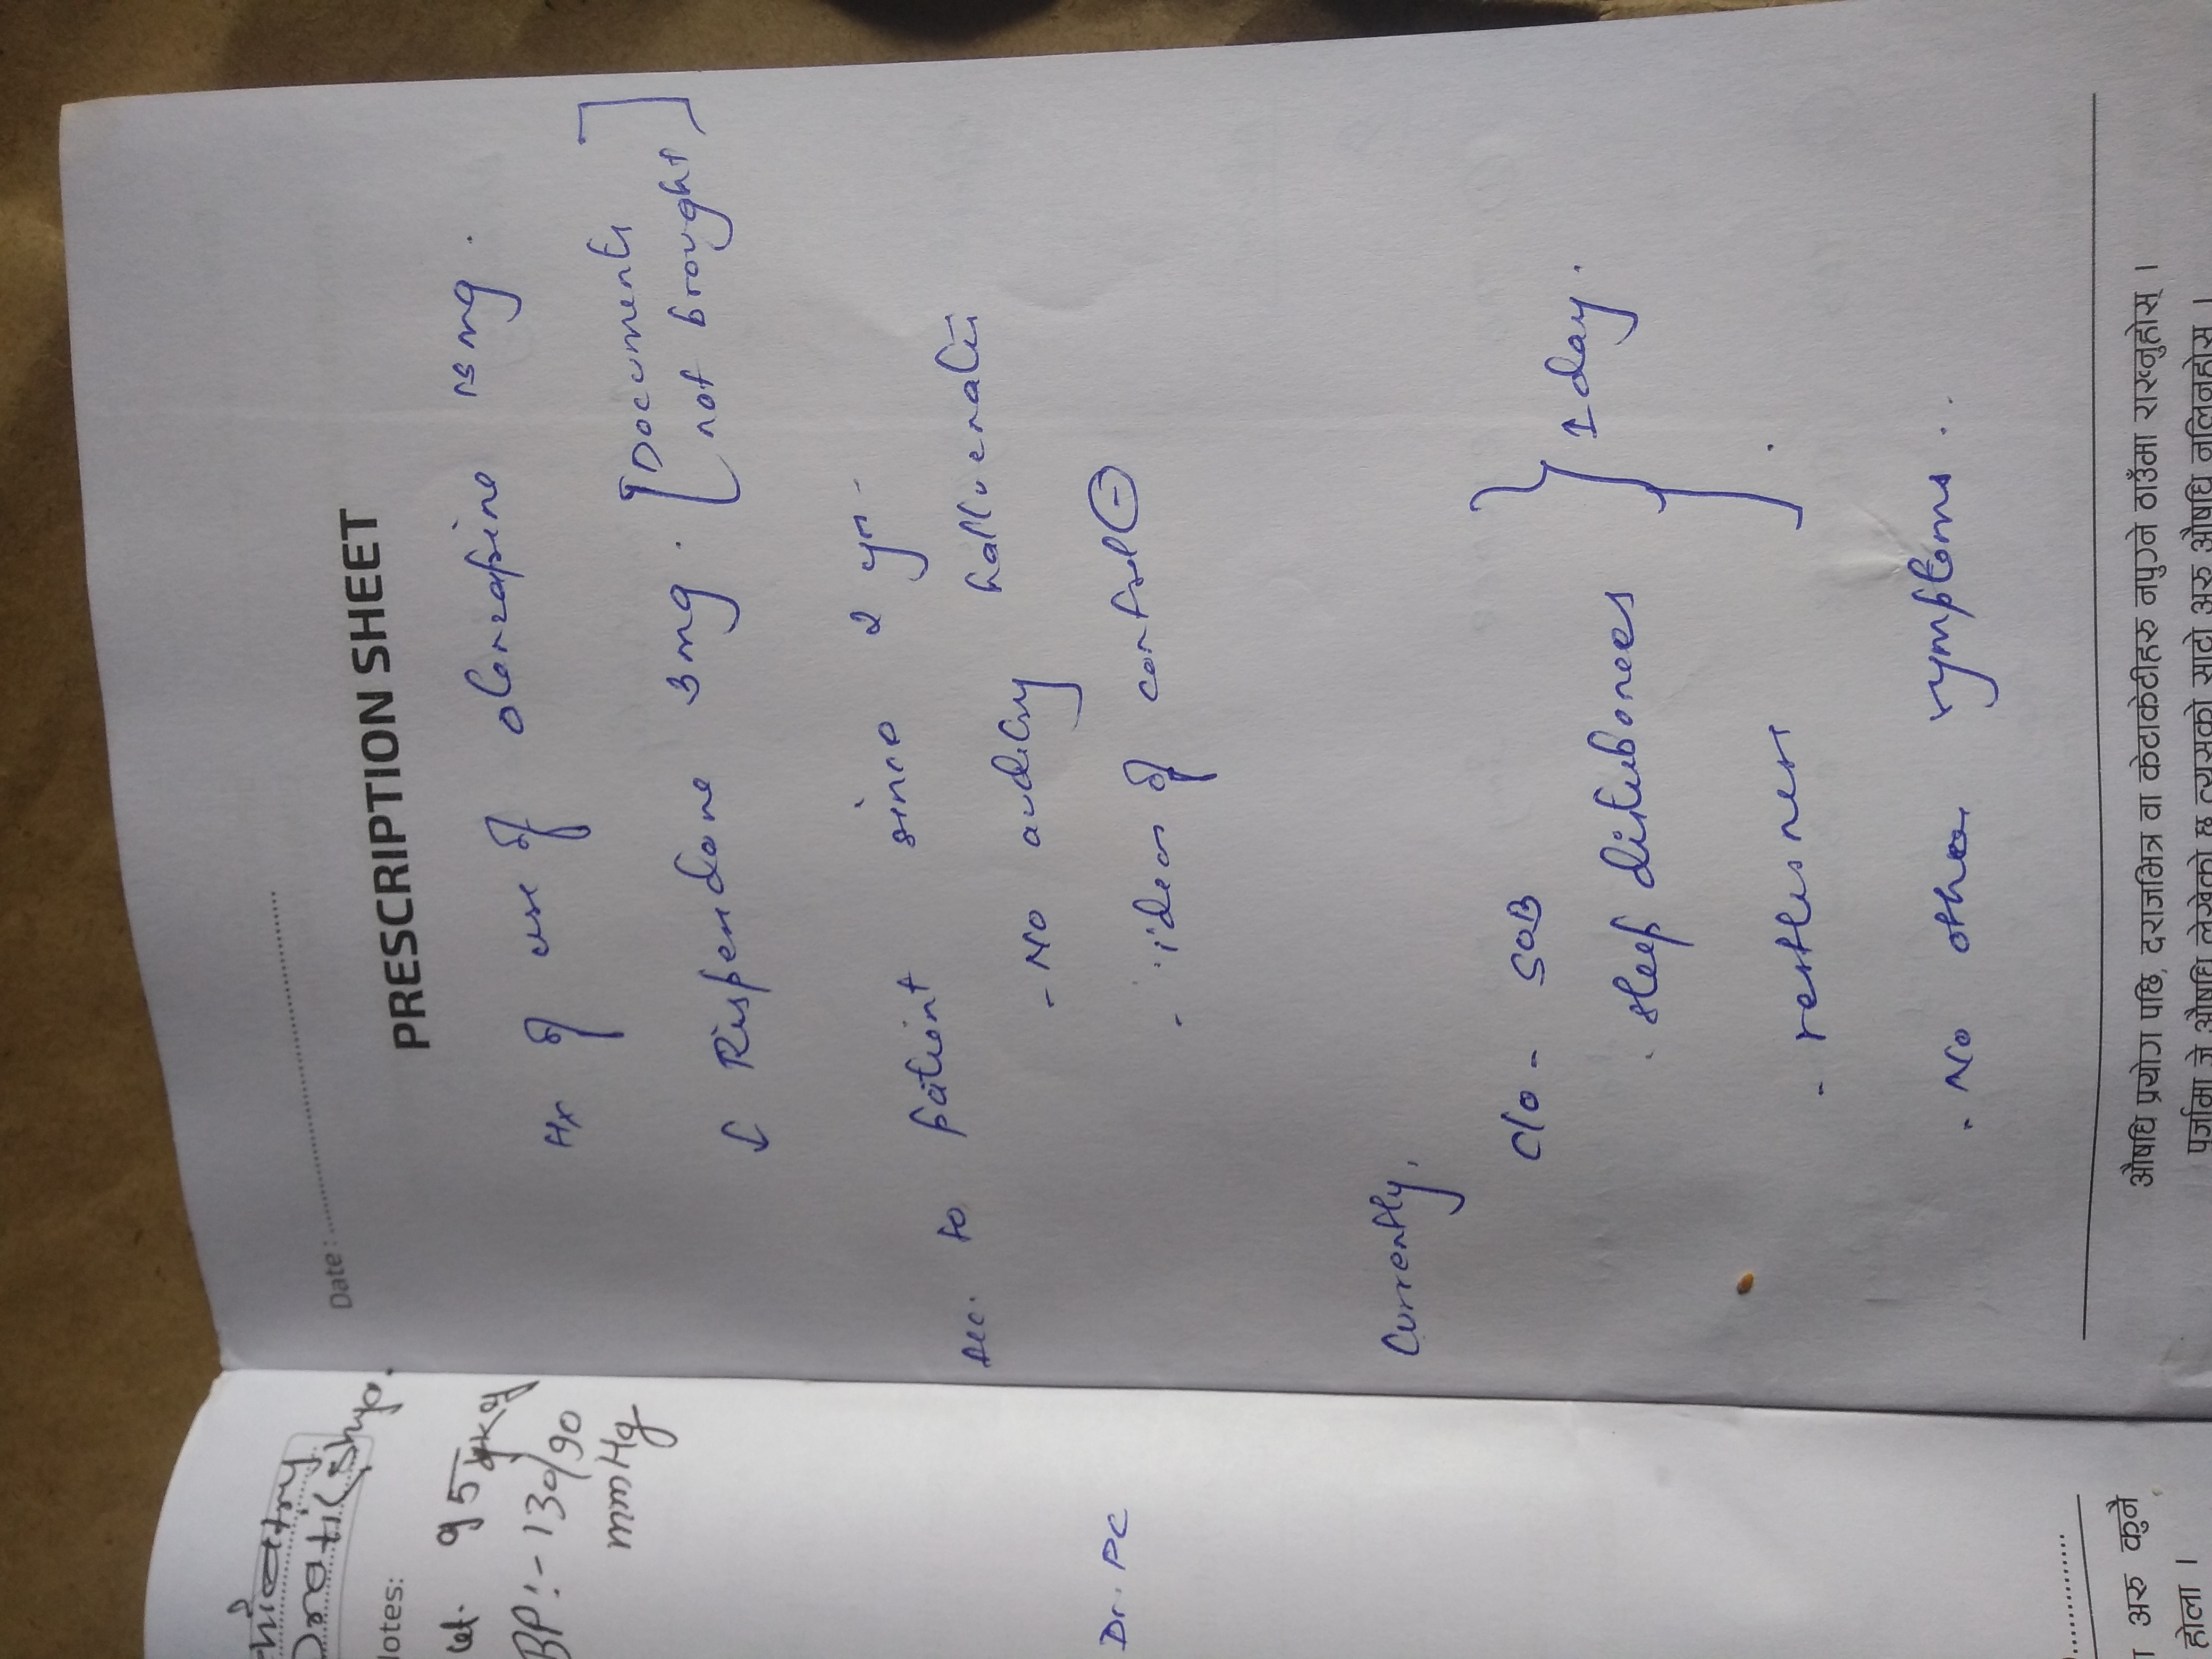 Notes:
wt. 95 kg
BP:- 130/90
mmHg
Dr. PC
अरु कुनै
होला ।
Date :
PRESCRIPTION SHEET
Hx of use of olanzapine 15 mg.
& Risperidone 3 mg. [Documents
not brought]
Acc. to patient since 2 yr.
- No auditory hallucination
- ideas of control ⊖
Currently,
C/o - SOB
. sleep disturbances } 1 day.
- restlessness
- No other symptoms.
औषधि प्रयोग पछि, दराजभित्र वा केटाकेटीहरु नपुग्ने ठाउँमा राख्नुहोस् ।
पूर्जामा जे औषधि लेखेको छ त्यसको साटो अरु औषधि नलिनुहोस ।